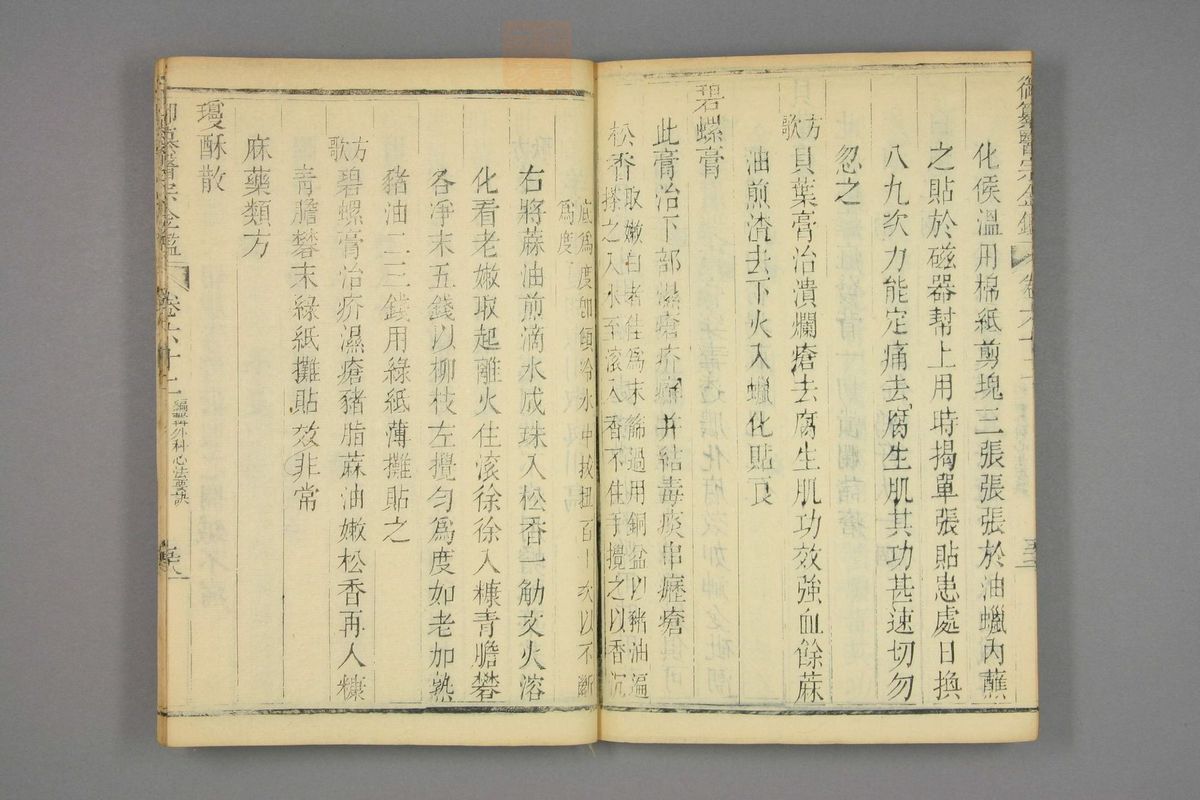 化侯溫用棉紙剪塊三張張張於油蠟內蘸
之貼於磁器幫上用時揭單張貼患處日換
八九次力能定痛去腐生肌其功甚速切勿
忽之
方歌
貝葉膏治潰爛瘡去腐生肌功效強血餘蔴
油煎渣去下火入蠟化貼良
碧螺膏
此膏治下部濕瘡疥癬并結毒痰串癧瘡
松香取嫩白者佳為末篩過用銅盆以豬油遍
搽之入水至滾入香不住手攪之以香沉
底為度即傾冷水中拔扭百十次以不斷
為度
右將蔴油煎滴水成珠入松香觔文火溶
化看老嫩取起離火住滾徐徐入糠青膽礬
各凈末五錢以柳枝左攪匀為度如老加熟
豬油二三錢用綠紙薄攤貼之
方歌
碧螺膏治疥濕瘡豬脂蔴油嫩松香再入糠
青膽礬末綠紙攤貼效非常
麻藥類方
瓊酥散
御纂醫宗金鑑 卷六十二 編輯外科心法要訣